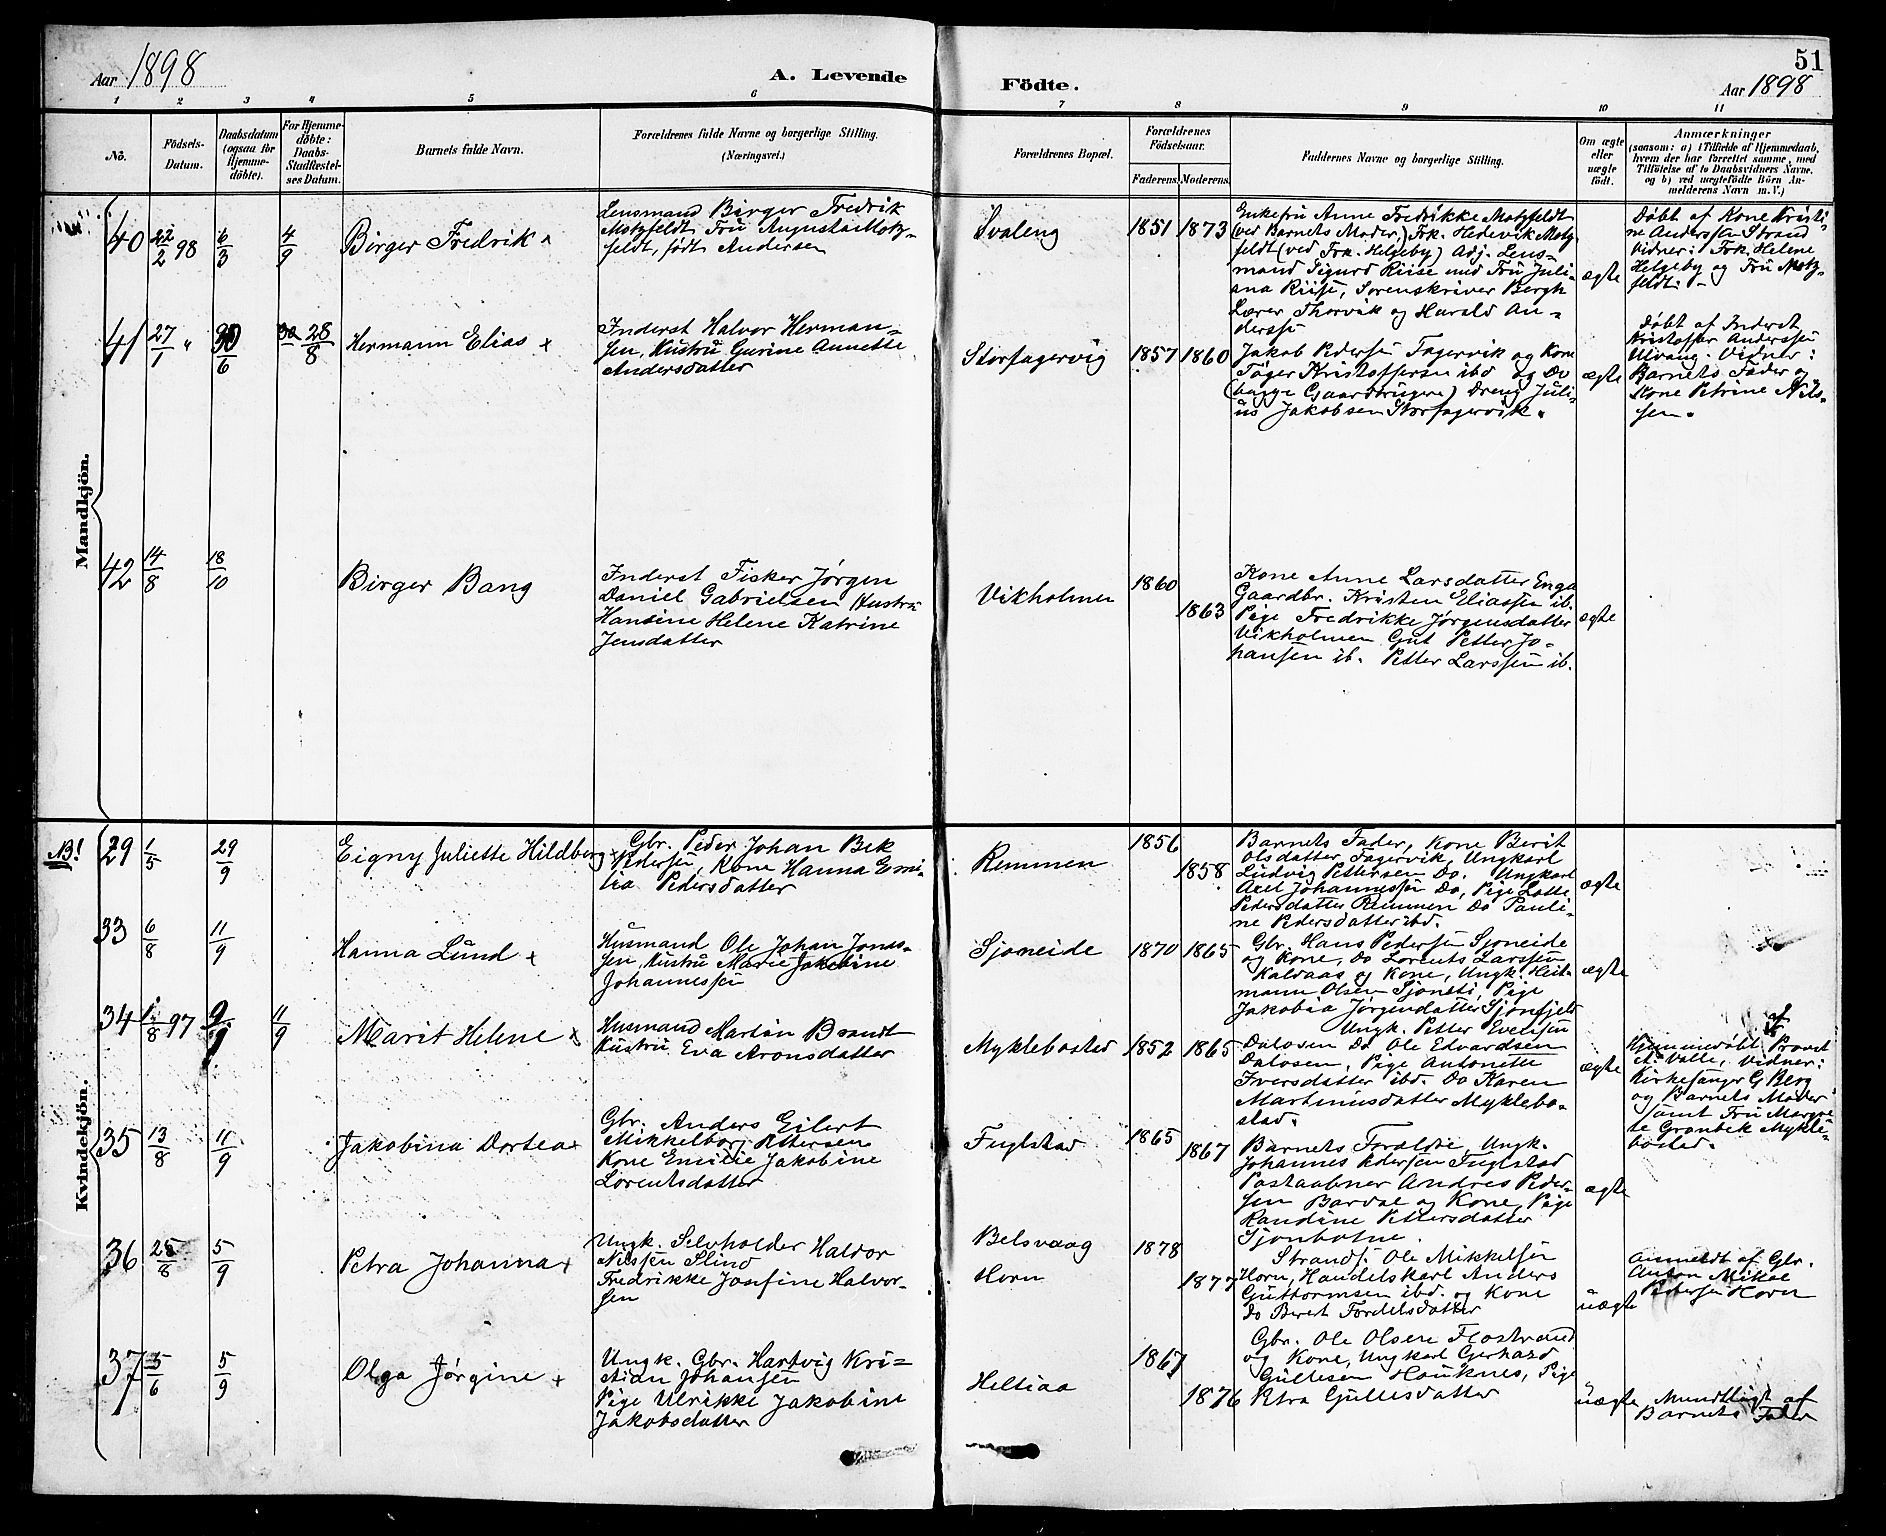 Aar 1898
A. Levende
Födte.
51
Aar 1898
1 2 3 4 5 6 7 8 9 10 11
No.
Födsels-
Datum.
Daabsdatum
(ogsaa for
Hjemme-
döbte).
For Hjemme-
döbte:
Daabs-
Stadfæstel-
ses Datum.
Barnets fulde Navn.
Forældrenes fulde Navne og borgerlige Stilling.
(Næringsvei.)
Forældrenes Bopæl.
Forældrenes
Födselsaar.
Faderens.
Moderens.
Faddernes Navne og borgerlige Stilling.
Om ægte
eller
uægte
födt.
Anmærkninger
(saasom: a) i Tilfælde af Hjemmedaab,
hvem der har forrettet samme, med
Tilföielse af to Daabsvidners Navne,
og b) ved uægtefödte Börn An-
melderens Navn m. V.)
Mandkjön.
40
22/2 98
6/3
4/9
Birger Fredrik
Lensmand Birger Fredrik
Motzfeldt Fru Augusta Motz-
feldt, født Andersen
Svaleng
1851
1873
Enkefru Anne Fredrikke Motzfeldt
(ved Barnets Moder) Frk. Hedevik Motz-
feldt (ved Frk. Helgeby) Adj. Lens-
mand Sigurd Riise med Fru Juli-
ana Riise, Sorenskriver Bergh
Lærer Thorvik og Harald An-
derssen
ægte
Døbt af Kone Kristi-
ne Andersen Strand
Vidner: Frk. Helene
Helgeby og Fru Motz-
feldt.
41
27/1 "
28/8
Hermann Elias +
Inderst Halvor Herman-
sen, Hustru Gurine Annette
Andersdatter
Storfagervig
1857
1860
Jakob Pedersen Fagervik og Kone
Kristoffersen ibd og Do
(begge Gaardbrugere) Dreng Juli-
us Jakobsen Storfagervik.
ægte
Døbt af Inderst
Kristoffer Anderssen
Utvang. Vidner:
Barnets Fader og
Kone Petrine Nils-
sen.
42
14/8
18/10
Birger Bang
Inderst Fisker Jørgen
Daniel Gabrielsen Hustru
Hansine Helene Katrine
Jensdatter
Vikholmen
1860
1863
Kone Anne Larsdatter Enga
Gaardbr. Kristen Eliassen ib.
Pige Fredrikke Jørgensdatter
Vikholmen Gut Petter Jo-
hansen ib. Petter Larssen ib.
ægte
Kvindekjön.
NB!
29
1/5
29/9
Eigny Juliette Hildborg
Gbr. Peder Johan Bek
Pedersen, Kone Hanna Emi-
lia Pedersdatter
Remmen
1856
1858
Barnets Fader, Kone Berit
Olsdatter Fagervik, Ungkarl
Ludvig Pettersen Do. Ungkarl
Axel Johannessen Do, Pige Lotte
Pedersdatter Remmen Do Pauli-
ne Pedersdatter ibd.
ægte
33
6/8
11/9
Hanna Lund +
Husmand Ole Johan Jonas-
sen, Hustru Marie Jakobine
Johannessen
Sjoneide
1870
1865
Gbr. Hans Pedersen Sjoneide
og Kone, Do Lorents Larssen
Kaldaas og Kone, Ungk. Her-
mann Olsen Pige
Jakobia Jørgensdatter Sjonfjeld
Ungk. Petter Evensen
ægte
34
1/8 97
9/9
11/9
Marit Helene
Husmand Martin Brandt
Hustru Eva Aronsdatter
Myklebostad
1852
1865
Dalosen Do Ole Edvardsen
Dalosen, Pige Antonette
Iversdatter ibd. Do Karen
Martinusdatter Myklebo-
stad.
ægte
af
Hjemmedøbt Provst
A. Valle, Vidner:
Kirkesanger G Berg
og Barnets Moder
samt Fru Margre-
te Grønbek Mykle-
bostad.
35
13/8
11/9
Jakobina Dortea +
Gbr. Anders Eilert
Mikkelborg Pettersen
Kone Emilie Jakobine
Lorentsdatter
Fuglstad
1865
1867
Barnets Forældre, Ungk.
Johannes Pedersen Fuglstad
Postaabner Andreas Peder-
sen Bardal og Kone, Pige
Randine Pettersdatter
Sjonbotne.
ægte
36
25/8
5/9
Petra Johanna +
Ungk. Selvholder Haldor
Nilssen Slind
Fredrikke Josefine Halvor-
sen
Belsvaag
Horn
1878
1877
Strands. Ole Mikkelsen
Horn, Handelskarl Anders
Guttormsen ibd. og Kone
Do Beret Fordelsdatter
uægte
Anmeldt af Gbr.
Anton Mikal
Pedersen Horn
37
5/6
5/9
Olga Jørgine +
Ungk. Gbr. Hartvig Kri-
stian Johansen
Pige Ulrikke Jakobine
Jakobsdatter
Heltiaa
1867
1876
Gbr. Ole Olsen Flostrand
og Kone, Ungkarl Gerhard
Gullesen Hauknes, Pige
Petra Gullesdatter
uægte
Mundtligt af
Barnets Fader